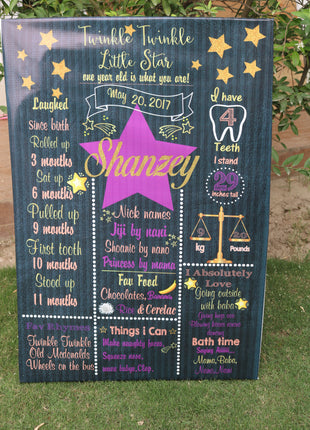 Twinkle Twinkle
Little Star
one year old is what you are!
May 20, 2017
Laughed
Since birth
Rolled up
3 months
Sat up
6 months
Pulled up
9 months
First tooth
10 months
Stood up
11 months
Fav Rhymes
Twinkle Twinkle
Old Mcdonalds
Wheels on the bus
Shanzey
Nick names
Jiji by nani
Shoanie by nano
Princess by mama
Fav Food
Chocolates, Banana,
Rice & Cerelac
Things i Can
Make naughty faces,
Squeeze nose,
Clap,
I have
4
Teeth
I stand
29
inches tall
9
kg
20
Pounds
I Absolutely
Love
Going outside
with baba
Going
Bath time
Saying
Mama, Baba,
Nano, Nani